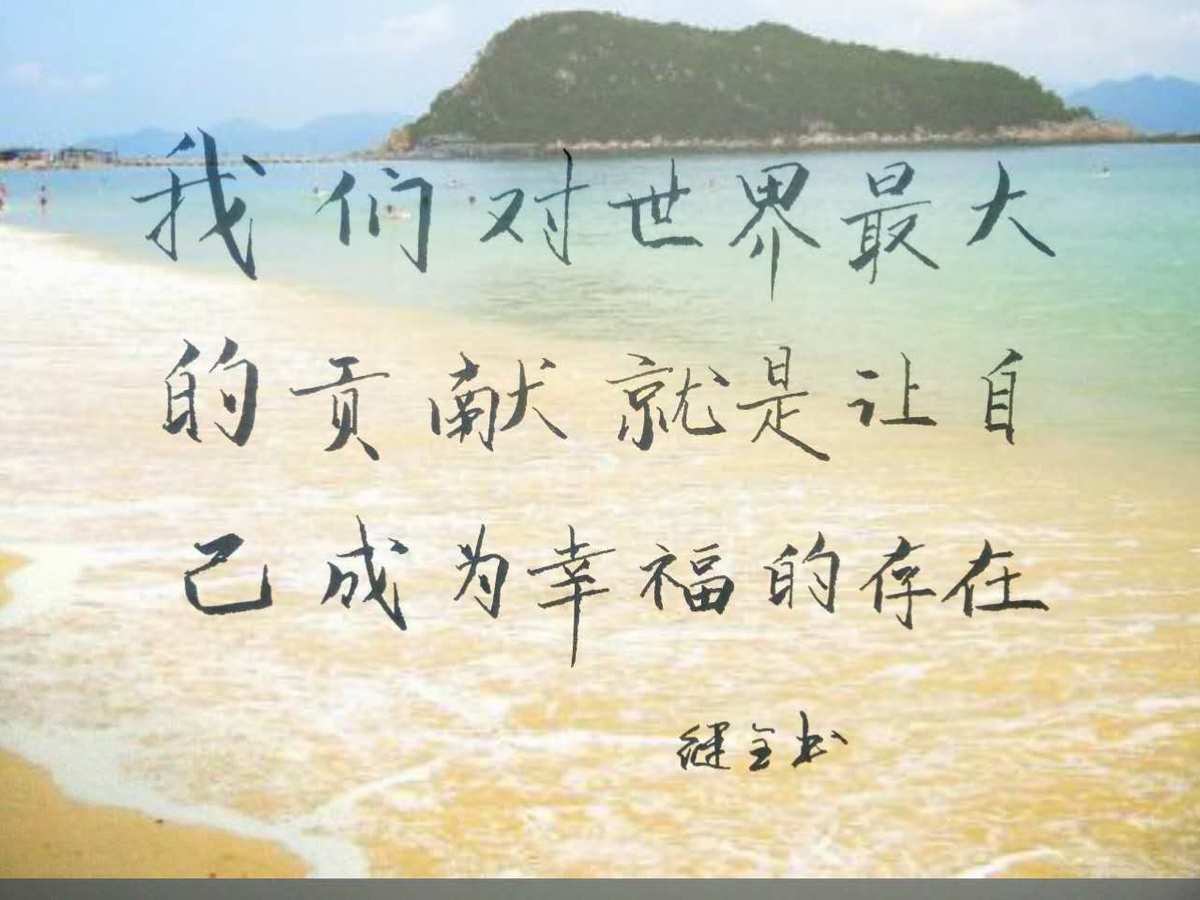 我们对世界最大
的贡献就是让自
己成为幸福的存在
继全书